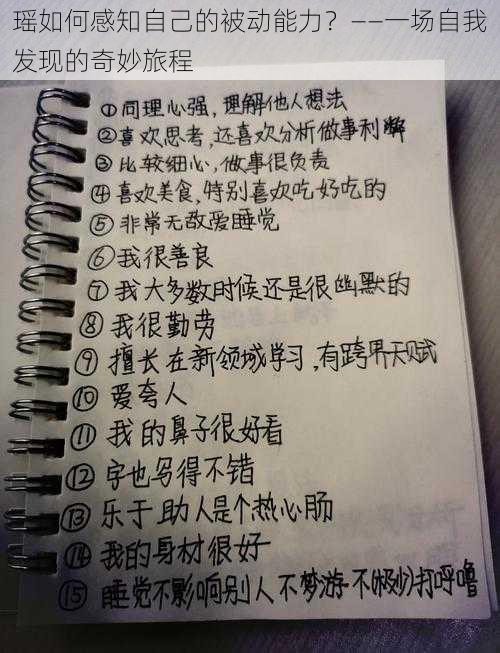 瑶如何感知自己的被动能力？——一场自我
发现的奇妙旅程
①同理心强，理解他人想法
②喜欢思考，还喜欢分析做事利弊
③比较细心，做事很负责
④喜欢美食，特别喜欢吃好吃的
⑤非常无敌爱睡觉
⑥我很善良
⑦我大多数时候还是很幽默的
⑧我很勤劳
⑨擅长在新领域学习，有跨界天赋
⑩爱夸人
⑪我的鼻子很好看
⑫字也写得不错
⑬乐于助人是个热心肠
⑭我的身材很好
⑮睡觉不影响别人不梦游·不(极少)打呼噜